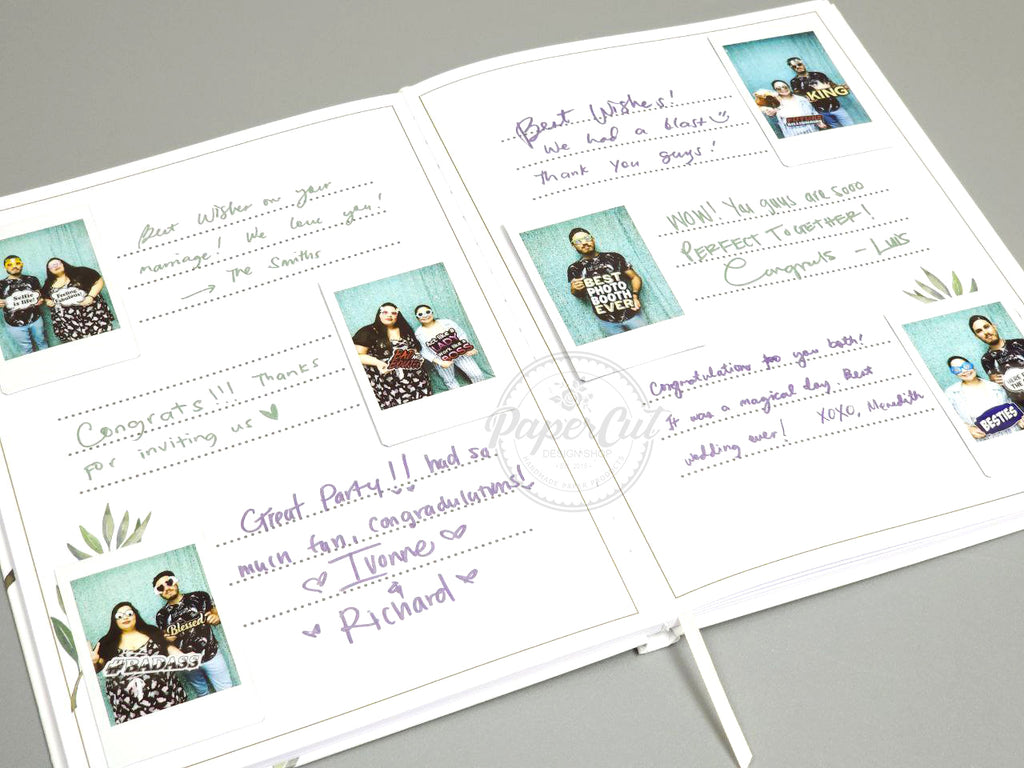 Best Wishes on your
marriage! We love you!
→ The Smiths
Selfie
is life!
Congrats!!! Thanks
for inviting us ♥
BOSS
LADY
BOSS
Great Party!! had so
much fun, congradulations!
♡ Ivonne ♡
&
♡ Richard ♡
Blessed
#BADASS
Best Wishes!
We had a blast
Thank you guys!
KING
WOW! You guys are sooo
PERFECT TOGETHER!
Congrats - Luis
BEST
PHOTO
BOOTH
EVER
Congratulations for you both!
It was a magical day. Best
wedding ever! XOXO, Meredith
BESTIES
PaperCut
DESIGN SHOP
HANDMADE PAPER PRODUCTS